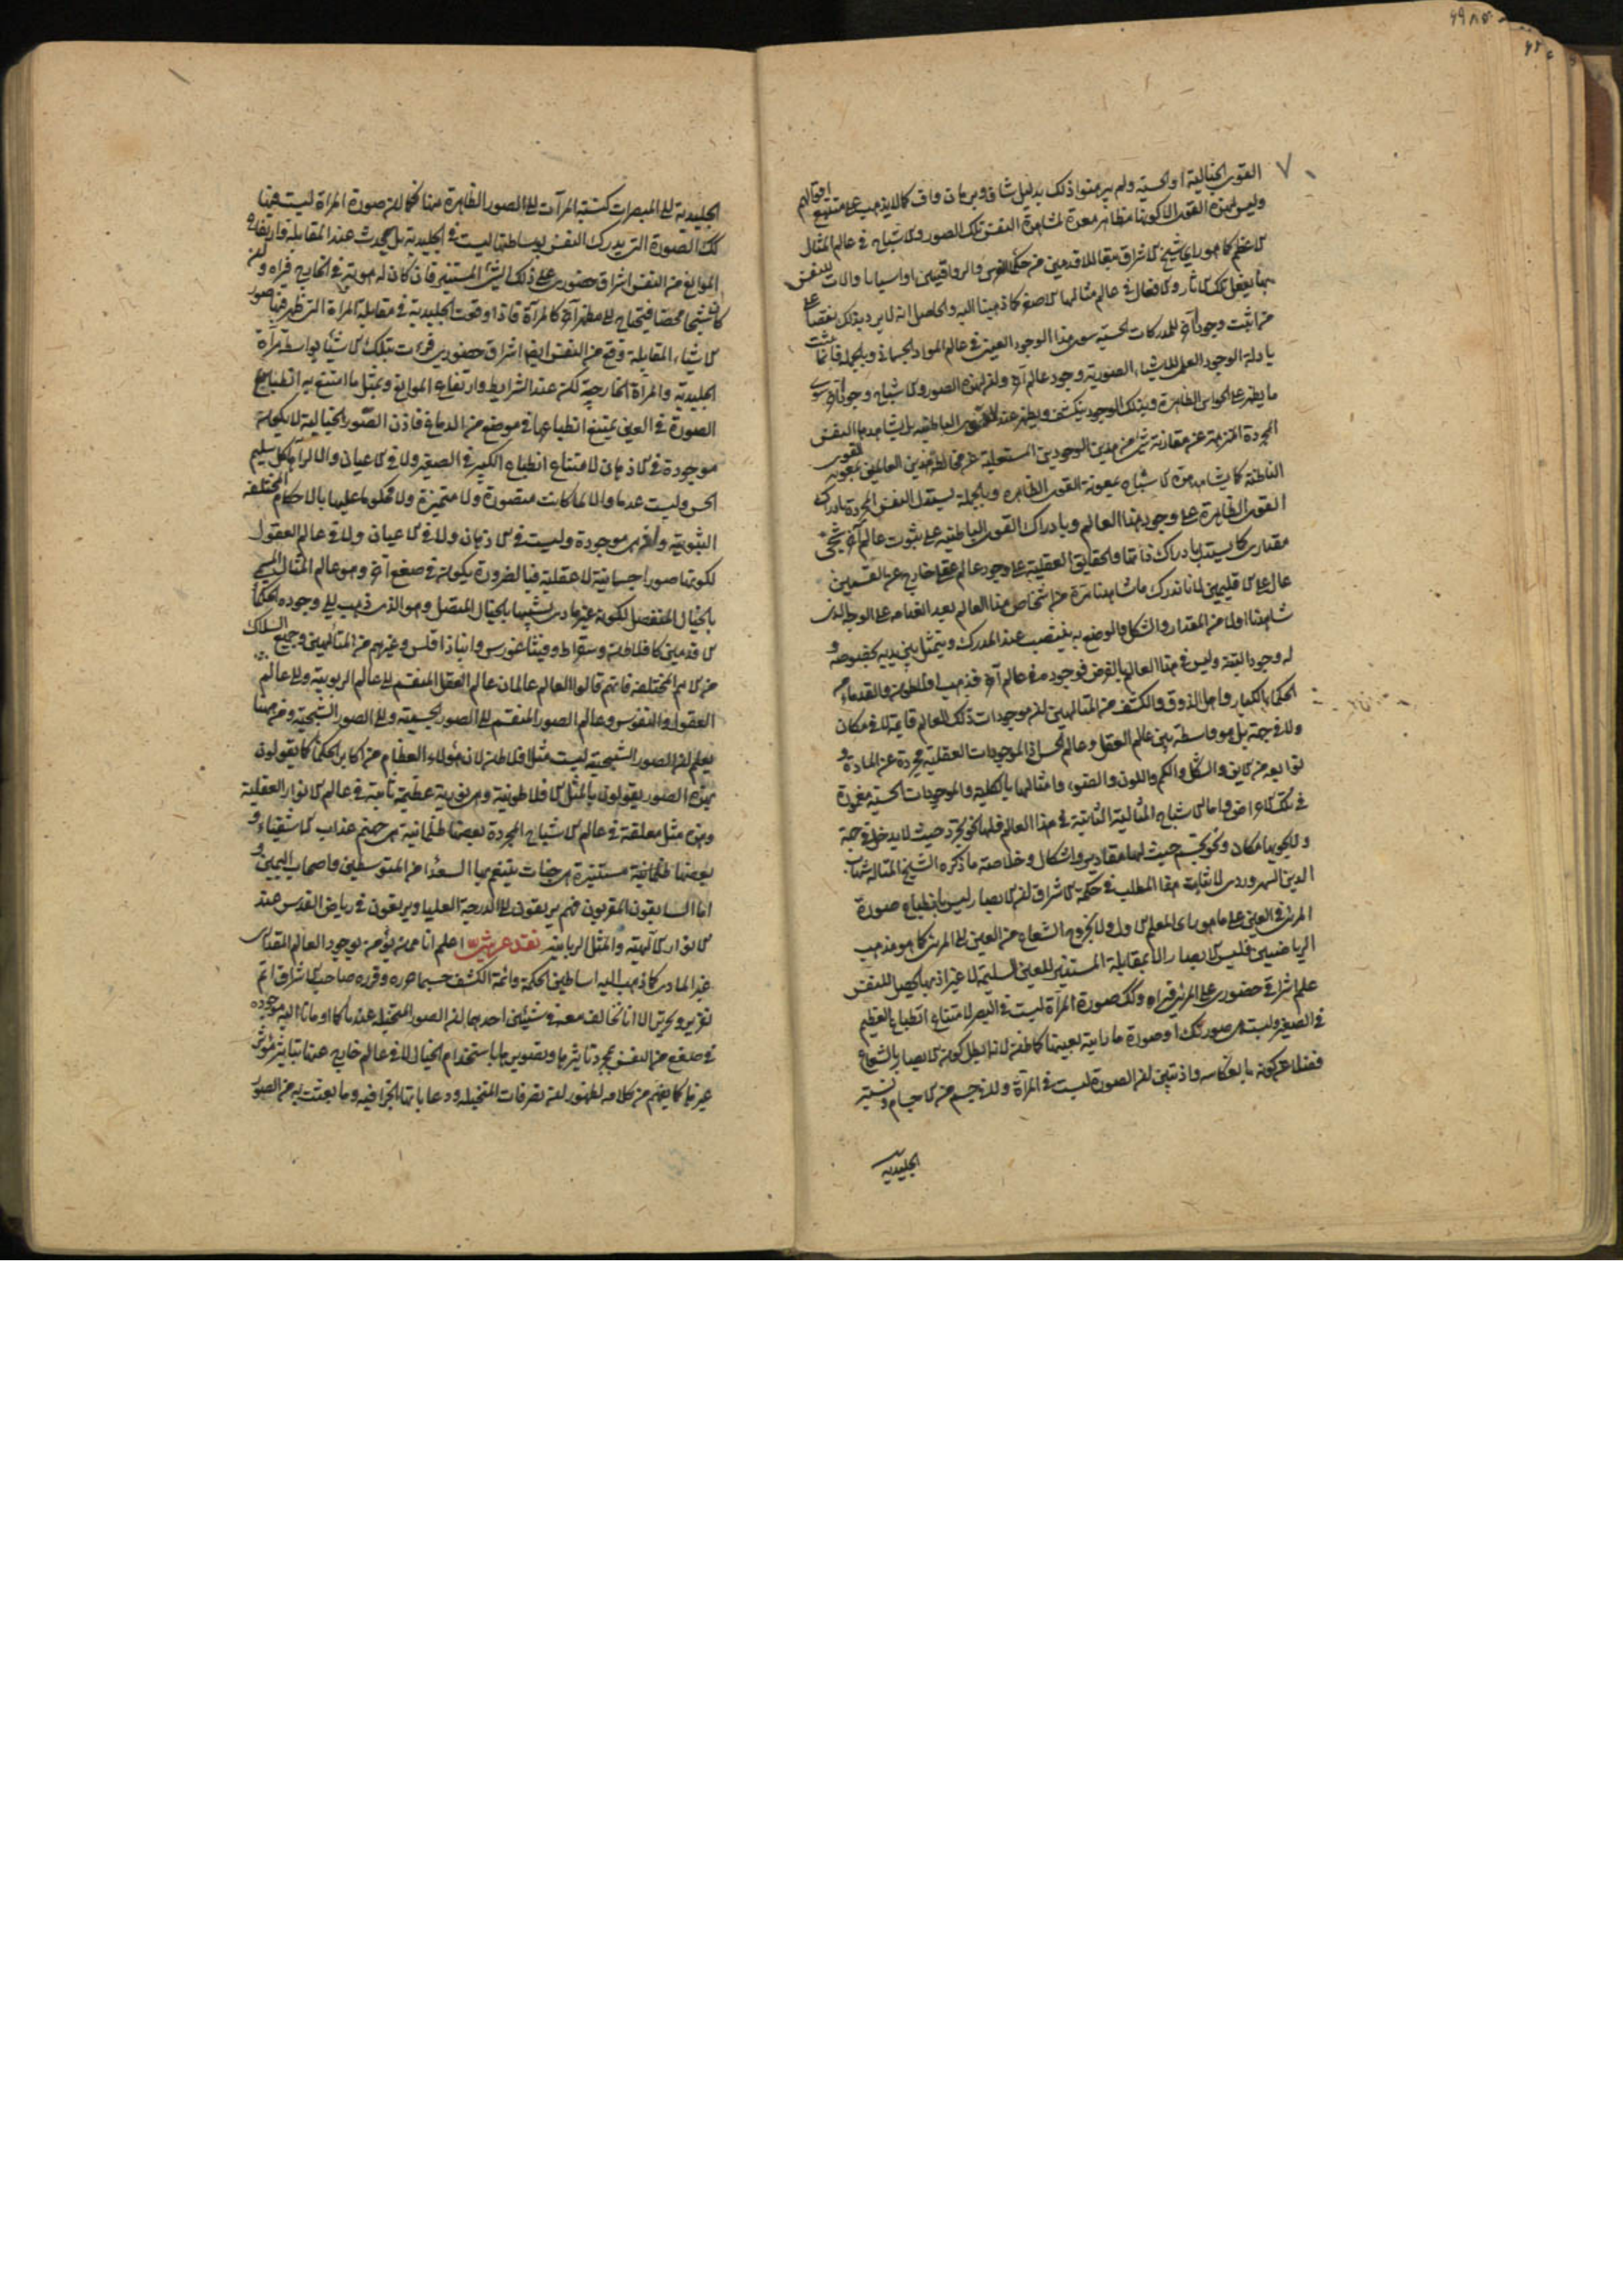 القوى الخيالية او الحسية ولم يبرهنوا ذلك بدليل شاف وبرهان واف كما لا يذهب على متتبع اقوالهم
وليس لهذه القوى الا كونها مظاهر معدة لمشاهدة النفس تلك الصور والاشباح في عالم المثال
الاعظم كما هو راى شيخ الاشراق تبعا للاقدمين من حكماء الفرس والرواقيين او اسبابا والات للنفس
بها يفعل تلك الاثار والافعال في عالم مثالها الاصغر كما ذهبنا اليه والحاصل انه لا يرد بذلك نقضا على
من اثبت وجودا اخر للمدركات الحسية سوى هذا الوجود العيني في عالم المواد الجسمانية وبالجملة فانما يثبت
بادلة الوجود العلمى للاشياء الصورية وجود عالم اخر وان لهذه الصور والاشباح وجودا اخر سوى
ما يظهر على الحواس الظاهرة وبذلك الوجود ينكشف ويظهر عند القوى الباطنية بل يشاهدها النفس
المجردة المنزهة عن مقارنة شئ من هذين الوجودين المستعلية عن مخالطة هذين العالمين بمعونة القوى
الناطقة كما يشاهد هذه الاشباح بمعونة القوى الظاهرة وبالجملة يستدل النفس المجردة بادراك
القوى الظاهرة على وجود هذا العالم وبادراك القوى الباطنية على ثبوت عالم اخر شبحى
مقدارى كما يستدل بادراك ذاتها والحقايق العقلية على وجود عالم عقلى خارج عن القسمين
عال على الاقليمين لانا ندرك ما شاهدنا مرة من اشخاص هذا العالم بعد انعدامه على الوجه الذى
شاهدنا اولا من المقدار والشكل والوضع به ينتصب عند المدرك ويتمثل بين يديه بخصوصه و
له وجود البتة وليس في هذا العالم بالفرض فوجوده في عالم اخر فذهب افلاطون والقدماء من
الحكماء الكبار واهل الذوق والكشف من المتالهين ان موجودات ذلك العالم قايمة لا في مكان
ولا في جهة بل هو واسطة بين عالم العقل وعالم الحس اذ الموجودات العقلية مجردة عن المادة و
توابعها من الاين والشكل والكم واللون والضوء وامثالها بالكلية والموجودات الحسية مغمورة
في تلك الاعراض واما الاشباح المثالية الثابتة في هذا العالم فلها نحو تجرد حيث لا يدخل في جهة
ولا يحويها مكان ونحو تجسم حيث لها مقادير واشكال وخلاصة ما ذكره الشيخ المتاله شهاب
الدين السهروردى لاثبات هذا المطلب في حكمة الاشراق ان الابصار ليس بانطباع صورة
المرئى في العين على ما هو راى المعلم الاول ولا بخروج الشعاع من العين الى المرئى كما هو مذهب
الرياضيين فليس الابصار الا بمقابلة المستنير للعين السليمة لا غير اذ بها يحصل للنفس
علم اشراقى حضورى على المرئى فيراه وكذلك صورة المرآة ليست في البصر لامتناع انطباع العظيم
في الصغير وليست هى صورتك او صورة ما رايته بعينها كما ظن لانه بطل كون الابصار بالشعاع
فضلا عن كونه بانعكاسه واذ تبين ان الصورة ليست في المرآة ولا في جسم من الاجسام ونسبة
الجليدية
الجليدية الى المبصرات كنسبة المرآت الى الصور الظاهرة منها فكما ان صورة المرآة ليست فيها
كذلك الصورة التى يدرك النفس بوساطتها ليست في الجليدية بل يحدث عند المقابلة وارتفاع
الموانع من النفس اشراق حضورى على ذلك الشئ المستنير فان كان له هوية في الخارج فيراه وان
كان شبحا محضا فيحتاج الى مظهر اخر كالمرآة فاذا وقعت الجليدية في مقابلة المرآة التى ظهر فيها صور
الاشياء المقابلة وقع من النفس ايضا اشراق حضورى فرءت تلك الاشياء بواسطة مرآة
الجليدية والمرآة الخارجية لكن عند الشرايط وارتفاع الموانع وبمثل ما امتنع به انطباع
الصورة في العين يمتنع انطباعها في موضع من الدماغ فاذن الصور الخيالية لا يكون
موجودة في الاذهان لامتناع انطباع الكبير في الصغير ولا في الاعيان والا لرآها كل سليم
الحس وليست عدما والا لما كانت متصورة ولا متميزة ولا محكوما عليها بالاحكام المختلفة
الثبوتية واذ هى موجودة وليست في الاذهان ولا في الاعيان ولا في عالم العقول
لكونها صورا جسمانية لا عقلية فبالضرورة يكون في صقع اخر وهو عالم المثال المسمى
بالخيال المنفصل لكونه غير مادى تشبيها بالخيال المتصل وهو الذى ذهب الى وجوده الحكماء
الاقدمين كافلاطن وسقراط وفيثاغورس وانباذقلس وغيرهم من المتألهين وجميع السلاك
من الامم المختلفة فانهم قالوا العالم عالمان عالم العقل المنقسم الى عالم الربوبية والى عالم
العقول والنفوس وعالم الصور المنقسم الى الصور الجسمية والى الصور الشبحية ومن هيهنا
يعلم ان الصور الشبحية ليست مثل افلاطن لان هؤلاء العظام من اكابر الحكماء كما يقولون
بهذه الصور يقولون بالمثل الافلاطونية وهى نورية عظيمة ثابتة في عالم الانوار العقلية
وهذه مثل معلقة في عالم الاشباح المجردة بعضها ظلمانية هى جهنم عذاب الاشقياء و
بعضها ظلمانية مستنيرة هى جنات يتنعم بها السعداء من المتوسطين واصحاب اليمين و
اما السابقون المقربون فهم يرتقون الى الدرجة العليا ويرتعون في رياض القدس عند
الانوار الالهية والمثل الربانية نقد عرشى اعلم انا ممن يؤمن بوجود العالم المقدارى
غير المادى كما ذهب اليه اساطين الحكمة وائمة الكشف حسبما حرره وقرره صاحب الاشراق اتم
تقرير وتحرير الا انا نخالف معه في شيئين احدهما ان الصور المتخيلة عندنا كما اومانا اليه موجودة
في صقع من النفس بمجرد تاثيرها وتصويرها باستخدام الخيال لا في عالم خارج عنها بتاثير مؤثر
غيرها كما يفهم من كلامه لظهور ان تصرفات المتخيلة ودعاباتها الجزافية وما يعبث به من الصور